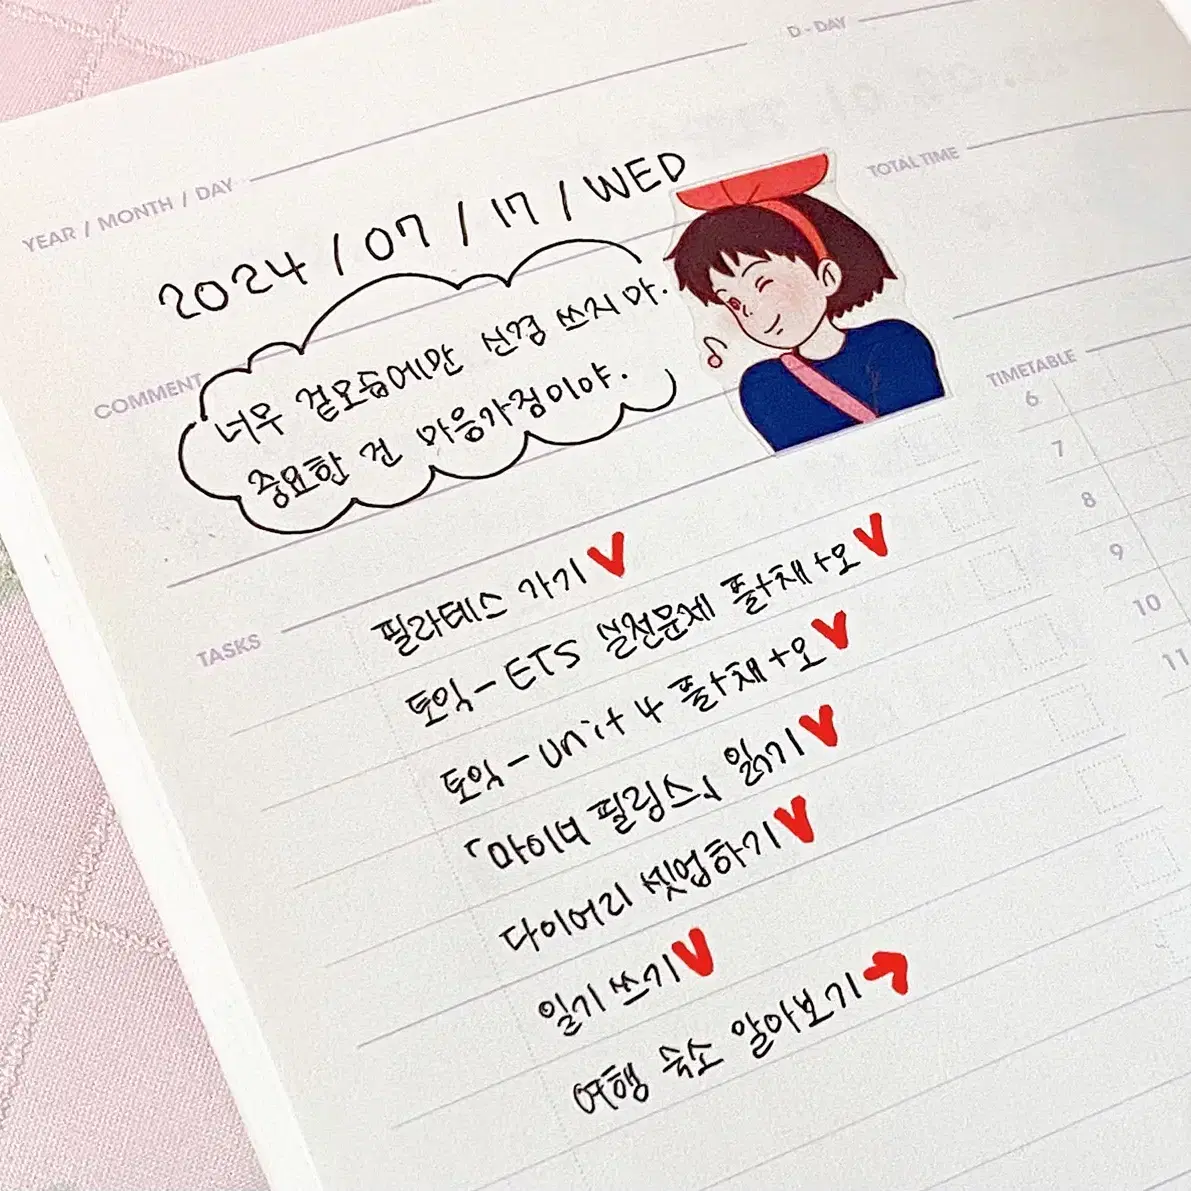 D-DAY
YEAR / MONTH / DAY
2024 / 07 / 17 / WED
TOTAL TIME
COMMENT
너무 겉모습에만 신경 쓰지 마.
중요한 건 마음가짐이야.
TIMETABLE
6
7
8
9
10
11
TASKS
필라테스 가기 V
토익-ETS 실전문제 풀+채+오 V
토익-unit 4 풀+채+오 V
「마이너 필링스」 읽기 V
다이어리 셋업하기 V
일기 쓰기 V
여행 숙소 알아보기 →